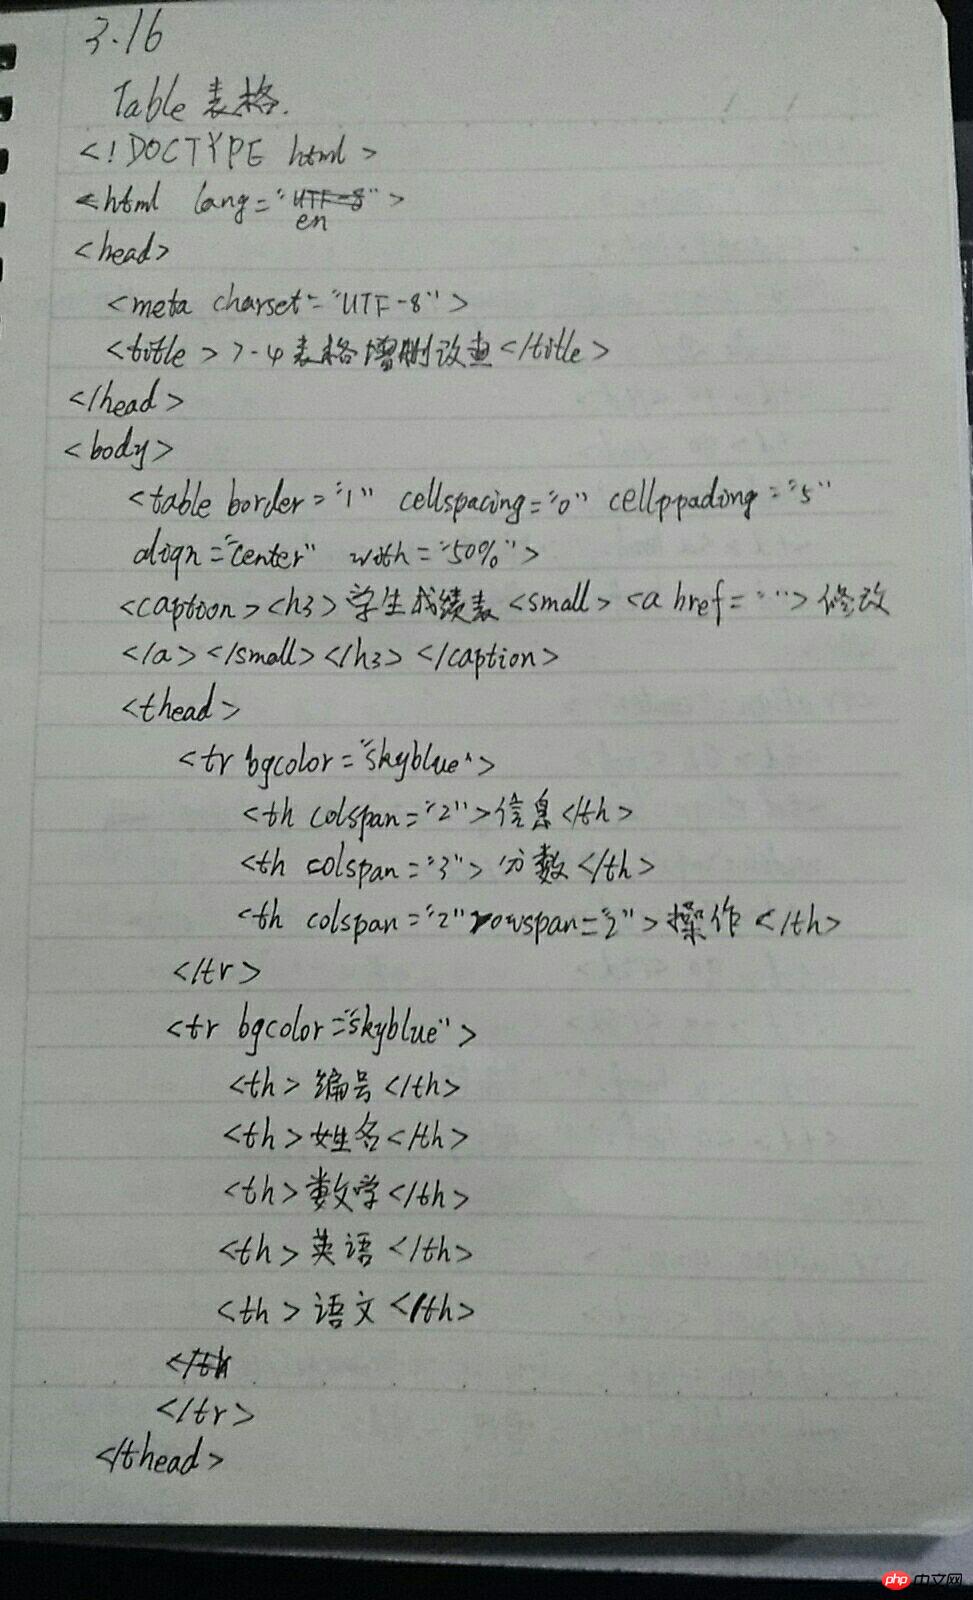 3.16
Table 表格.
<!DOCTYPE html>
<html lang="en">
<head>
<meta charset="UTF-8">
<title>7-4表格增删改查</title>
</head>
<body>
<table border="1" cellspacing="0" cellppading="5"
align="center" with="50%">
<caption><h3>学生成绩表<small><a href="">修改
</a></small></h3></caption>
<thead>
<tr bgcolor="skyblue">
<th colspan="2">信息</th>
<th colspan="3">分数</th>
<th colspan="2" rowspan="2">操作</th>
</tr>
<tr bgcolor="skyblue">
<th>编号</th>
<th>姓名</th>
<th>数学</th>
<th>英语</th>
<th>语文</th>
</tr>
</thead>
php 中文网